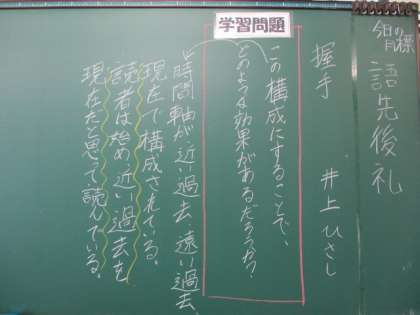 今日の目標
語先後礼
握手 井上ひさし
学習問題
この構成にすることで、
どのような効果があるだろうか?
時間軸が近い過去、遠い過去、
現在で構成されている。
読者は始め、近い過去を
現在だと思って読んでいる。